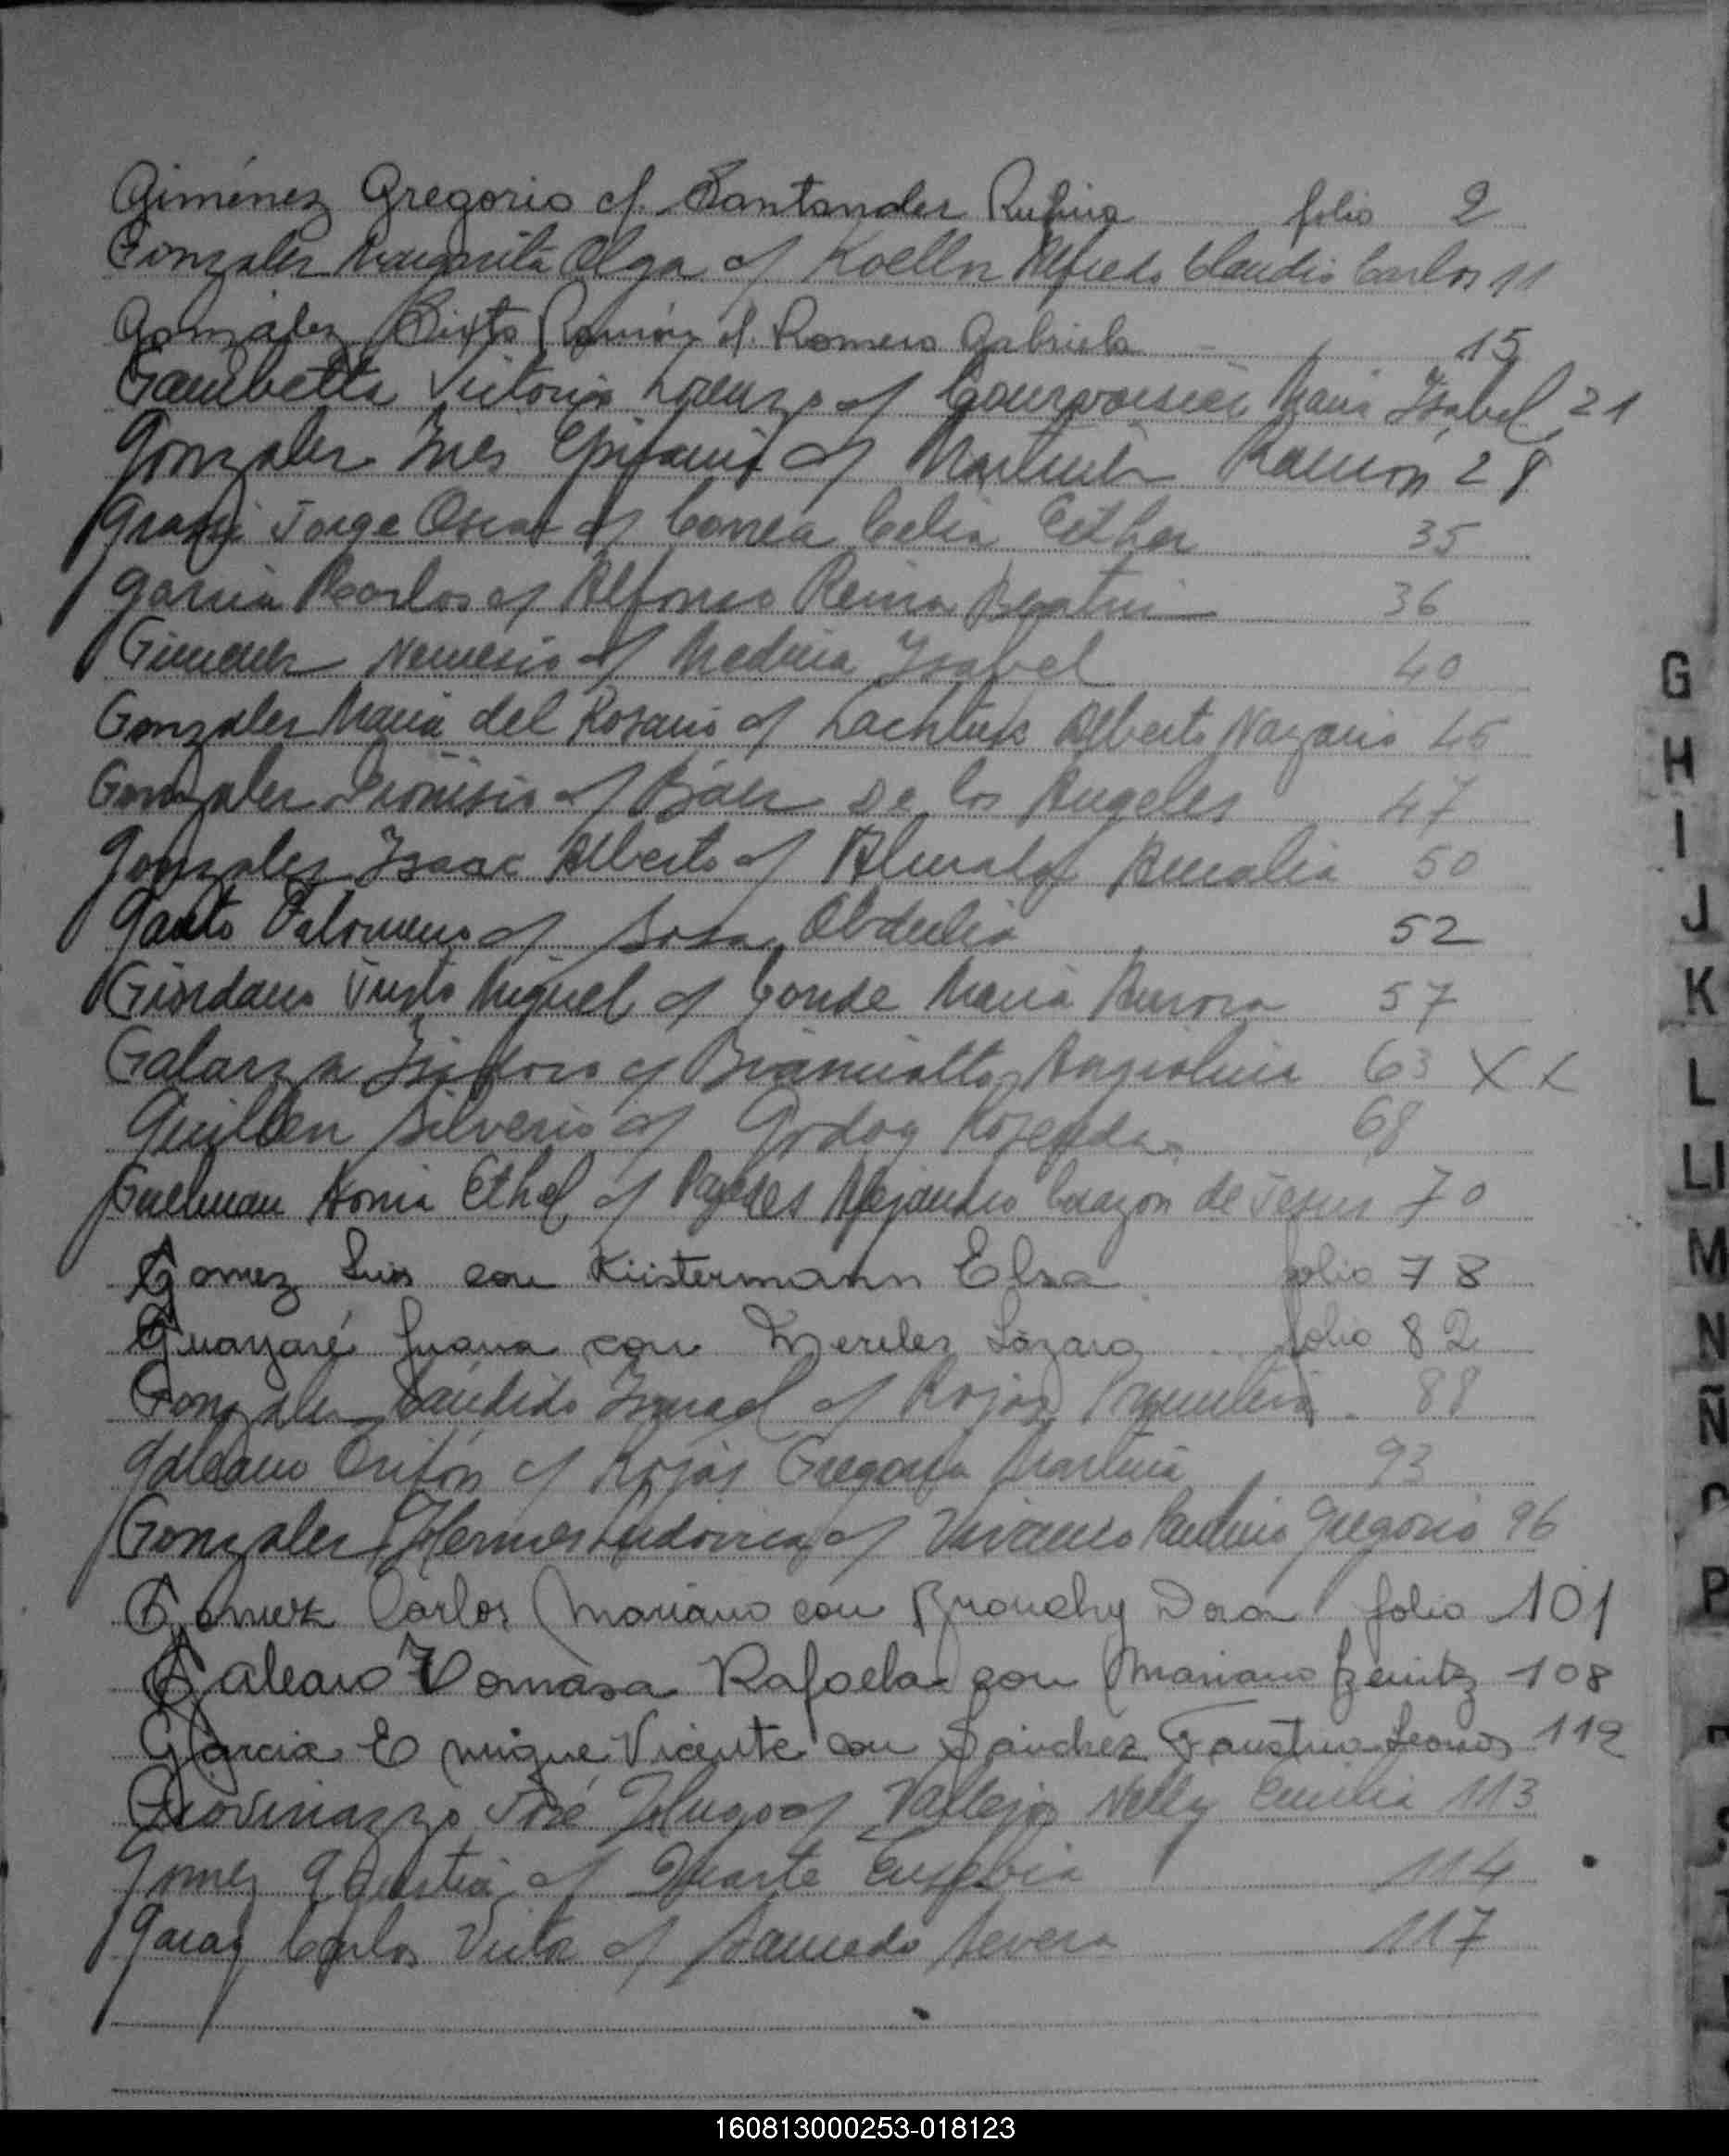 Giménez Gregorio c/. Santander Rufina folio 2
Gonzalez Margarita Olga c/ Koeller Alfredo Claudio Carlos 11
González Sixto Ramón c/. Romero Gabriela 15
Gambetta Victorio Lorenzo c/ Courvoisier Maria Isabel 21
Gonzalez Ines Epifania c/ Martinez Ramón 28
Grassi Jorge Oscar c/ Correa Celia Esther 35
Garcia Carlos c/ Alfonso Reina Beatriz 36
Gimenez Nemesio c/ Medina Isabel 40
Gonzalez Maria del Rosario c/ Alberto Nazario 45
Gonzalez Dionisio c/ Báez De los Angeles 47
Gonzalez Isaac Alberto c/ Amalia 50
c/ Sosa Obdulia 52
Giordano Justo Miguel c/ Conde Maria Aurora 57
Galarza Isidoro c/ 63 X X
Guillen Silverio c/ Godoy Rosenda 68
Sonia Ethel c/ Alejandro Corazon de Jesus 70
Gomez Luis con Küstermann Elsa folio 78
Guayaré Juana con Mereles Lázaro folio 82
Gonzalez Cándido Ismael c/ Rojas 88
Galeano Onifón c/ Rojas Gregoria Martina 93
Gonzalez Ludovica c/ Vivanco Gregorio 96
Gomez Carlos Mariano con Dora folio 101
Galeano Tomasa Rafaela con Mariano Benitz 108
Garcia Enrique Vicente con Sánchez Faustina Leonor 112
Giovinazzo José Hugo c/ Vallejos Nelly Emilia 113
Gomez Agustin c/ Duarte Eusebia 114
Garay Carlos Victor c/ Severa 117
G
H
I
J
K
L
Ll
M
N
Ñ
P
160813000253-018123